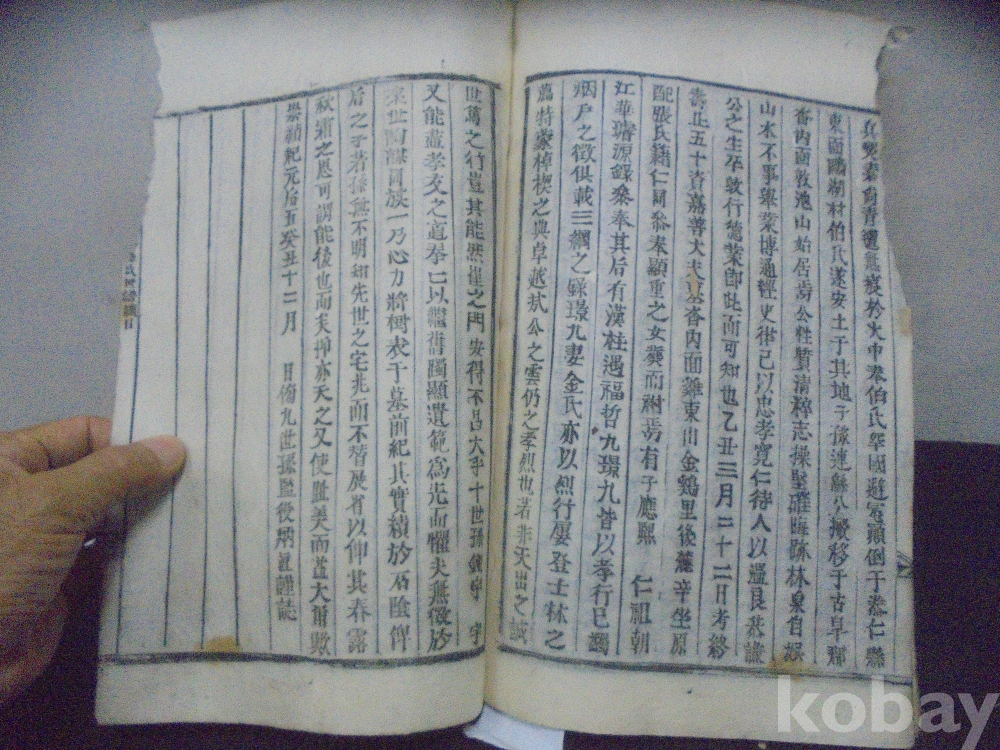 東面鷗湖村伯氏遂安土于其地子孫連縣公搬移于古阜郡
沓內面敦池山始居焉公性質清粹志操堅確晦跡林泉自娛
山水不事擧業博通經史律己以忠孝寬仁待人以溫良恭謙
公之生卒敦行德業卽此而可知也乙丑三月二十二日考終
壽止五十資嘉善大夫墓沓內面雞東山金鷄里後麓辛坐原
配張氏籍仁同參奉顯重之女葬而祔焉有子應熙 仁祖朝
江華璿源錄參奉其后有漢柱遇福哲九璟九皆以孝行已蠲
烟戶之徵俱載三綱之錄璟九妻金氏亦以烈行屢登士林之
薦特蒙棹楔之典卓越哉公之雲仍之孝烈也若非天出之誠
世篤之行豈其能然崔之門安得不昌大乎十世孫 宇
又能盡孝友之道奉已以繼書燭顯遺範爲先而懼夫無徵於
來世詢謀同族一乃心力將樹表于墓前紀其實績於石陰俾
后之子若孫無不明知先世之宅兆而不替展省以伸其春露
秋霜之感可謂能後也而夫抑亦天之又使趾美而益大爾歟
崇禎紀元后五癸丑十二月 日傍九世孫監役炳 謹誌